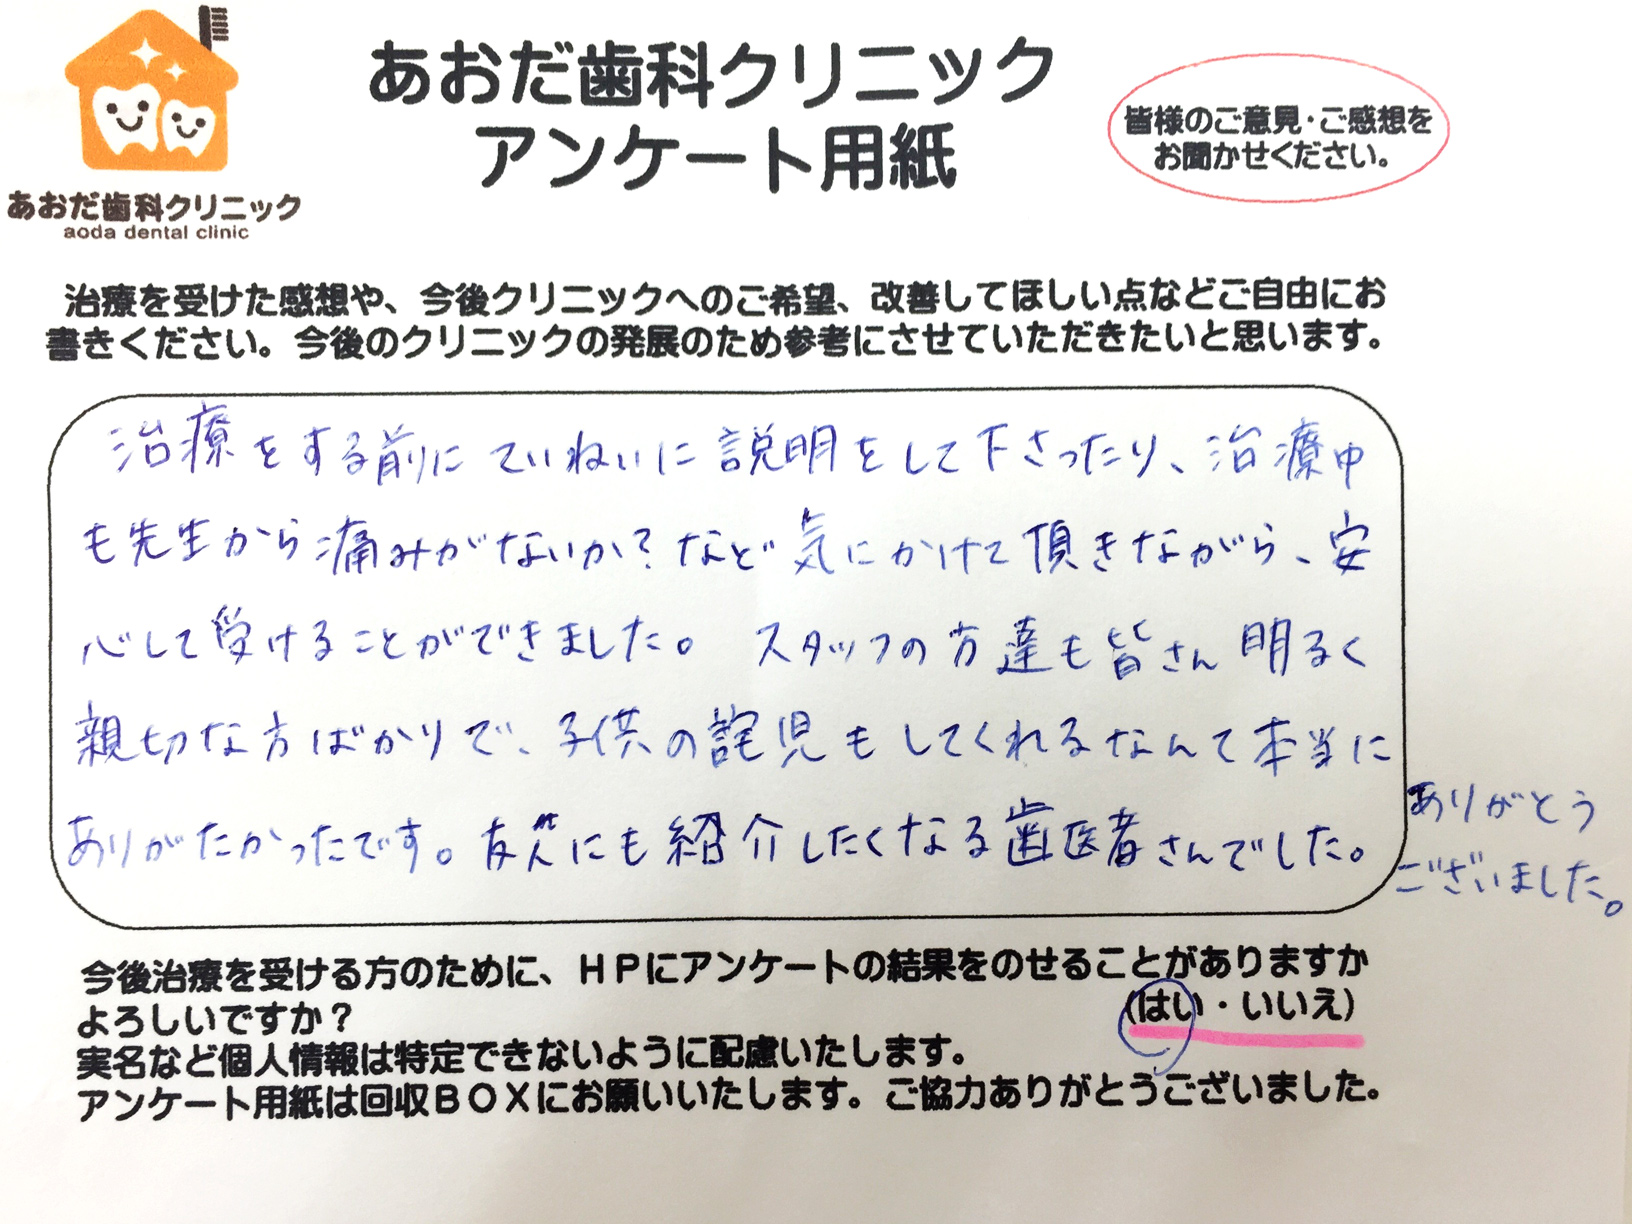 あおだ歯科クリニック
アンケート用紙
皆様のご意見・ご感想を
お聞かせください。
あおだ歯科クリニック
aoda dental clinic
治療を受けた感想や、今後クリニックへのご希望、改善してほしい点などご自由にお
書きください。今後のクリニックの発展のため参考にさせていただきたいと思います。
治療をする前にていねいに説明をして下さったり、治療中
も先生から痛みがないか?など気にかけて頂きながら、安
心して受けることができました。 スタッフの方達も皆さん明るく
親切な方ばかりで、子供の託児もしてくれるなんて本当に
ありがたかったです。友人にも紹介したくなる歯医者さんでした。
ありがとう
ございました。
今後治療を受ける方のために、HPにアンケートの結果をのせることがありますか
よろしいですか?
(はい・いいえ)
実名など個人情報は特定できないように配慮いたします。
アンケート用紙は回収BOXにお願いいたします。ご協力ありがとうございました。